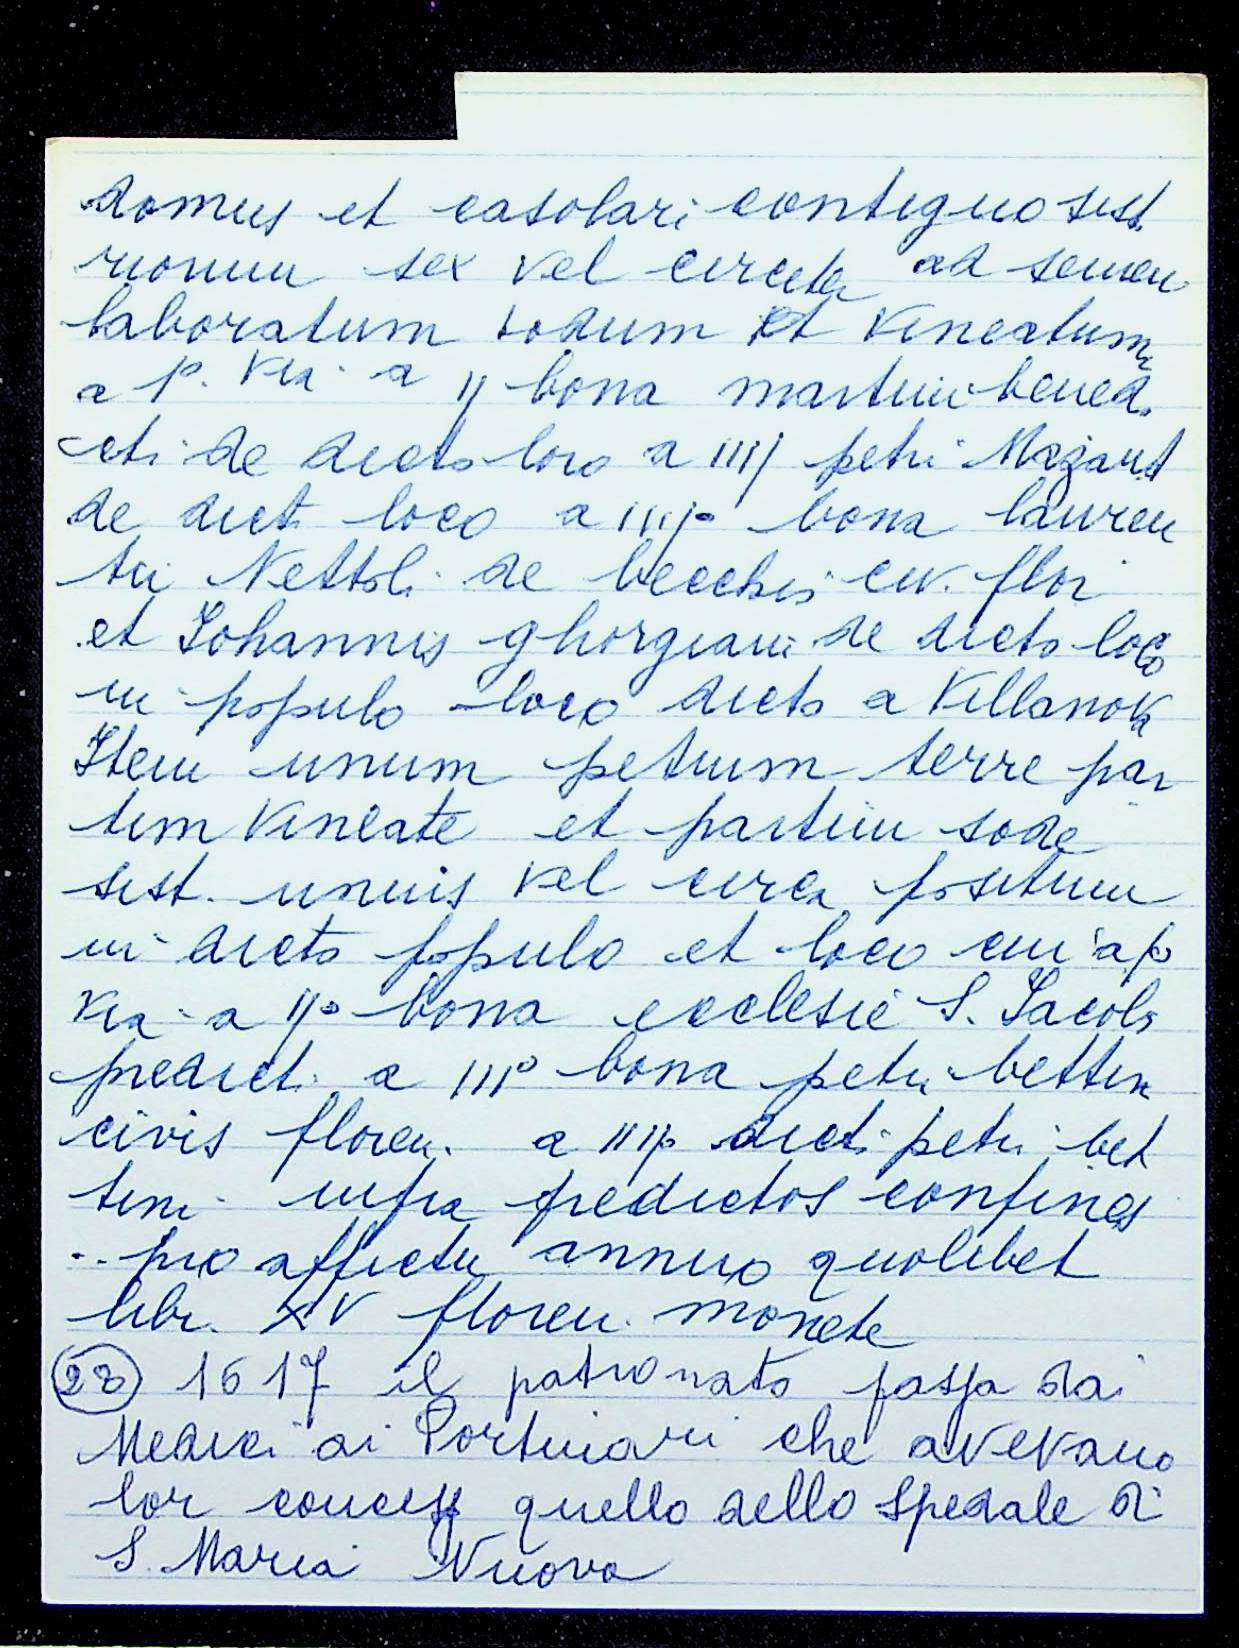 domus et casolari contiguo sist.
rionum sex vel circiter ad semen
laboratum sodum et vineatum
a p. via a ij bona martini bened.
cti de dicto loco a iiij petri
de dict. loco a iiijº bona lauren
tii Nettoli de becchis civ. flor
et Johannis ghorgiani de dicto loco
in populo loco dicto a Villanova
Item unum petium terre par
tim vineate et partim sode
sist. unius vel circa positum
in dicto populo et loco cui a pº
via a ijº bona ecclesie S. Jacobi
predict. a iiiº bona petri bettini
civis floren. a iiijº dicti petri bet
tini infra predictos confines
.. pro affictu annuo quolibet
libr. XV floren. monete
(28) 1617 il patronato passa dai
Medici ai Portinari che avevano
lor concess quello dello Spedale di
S. Maria Nuova